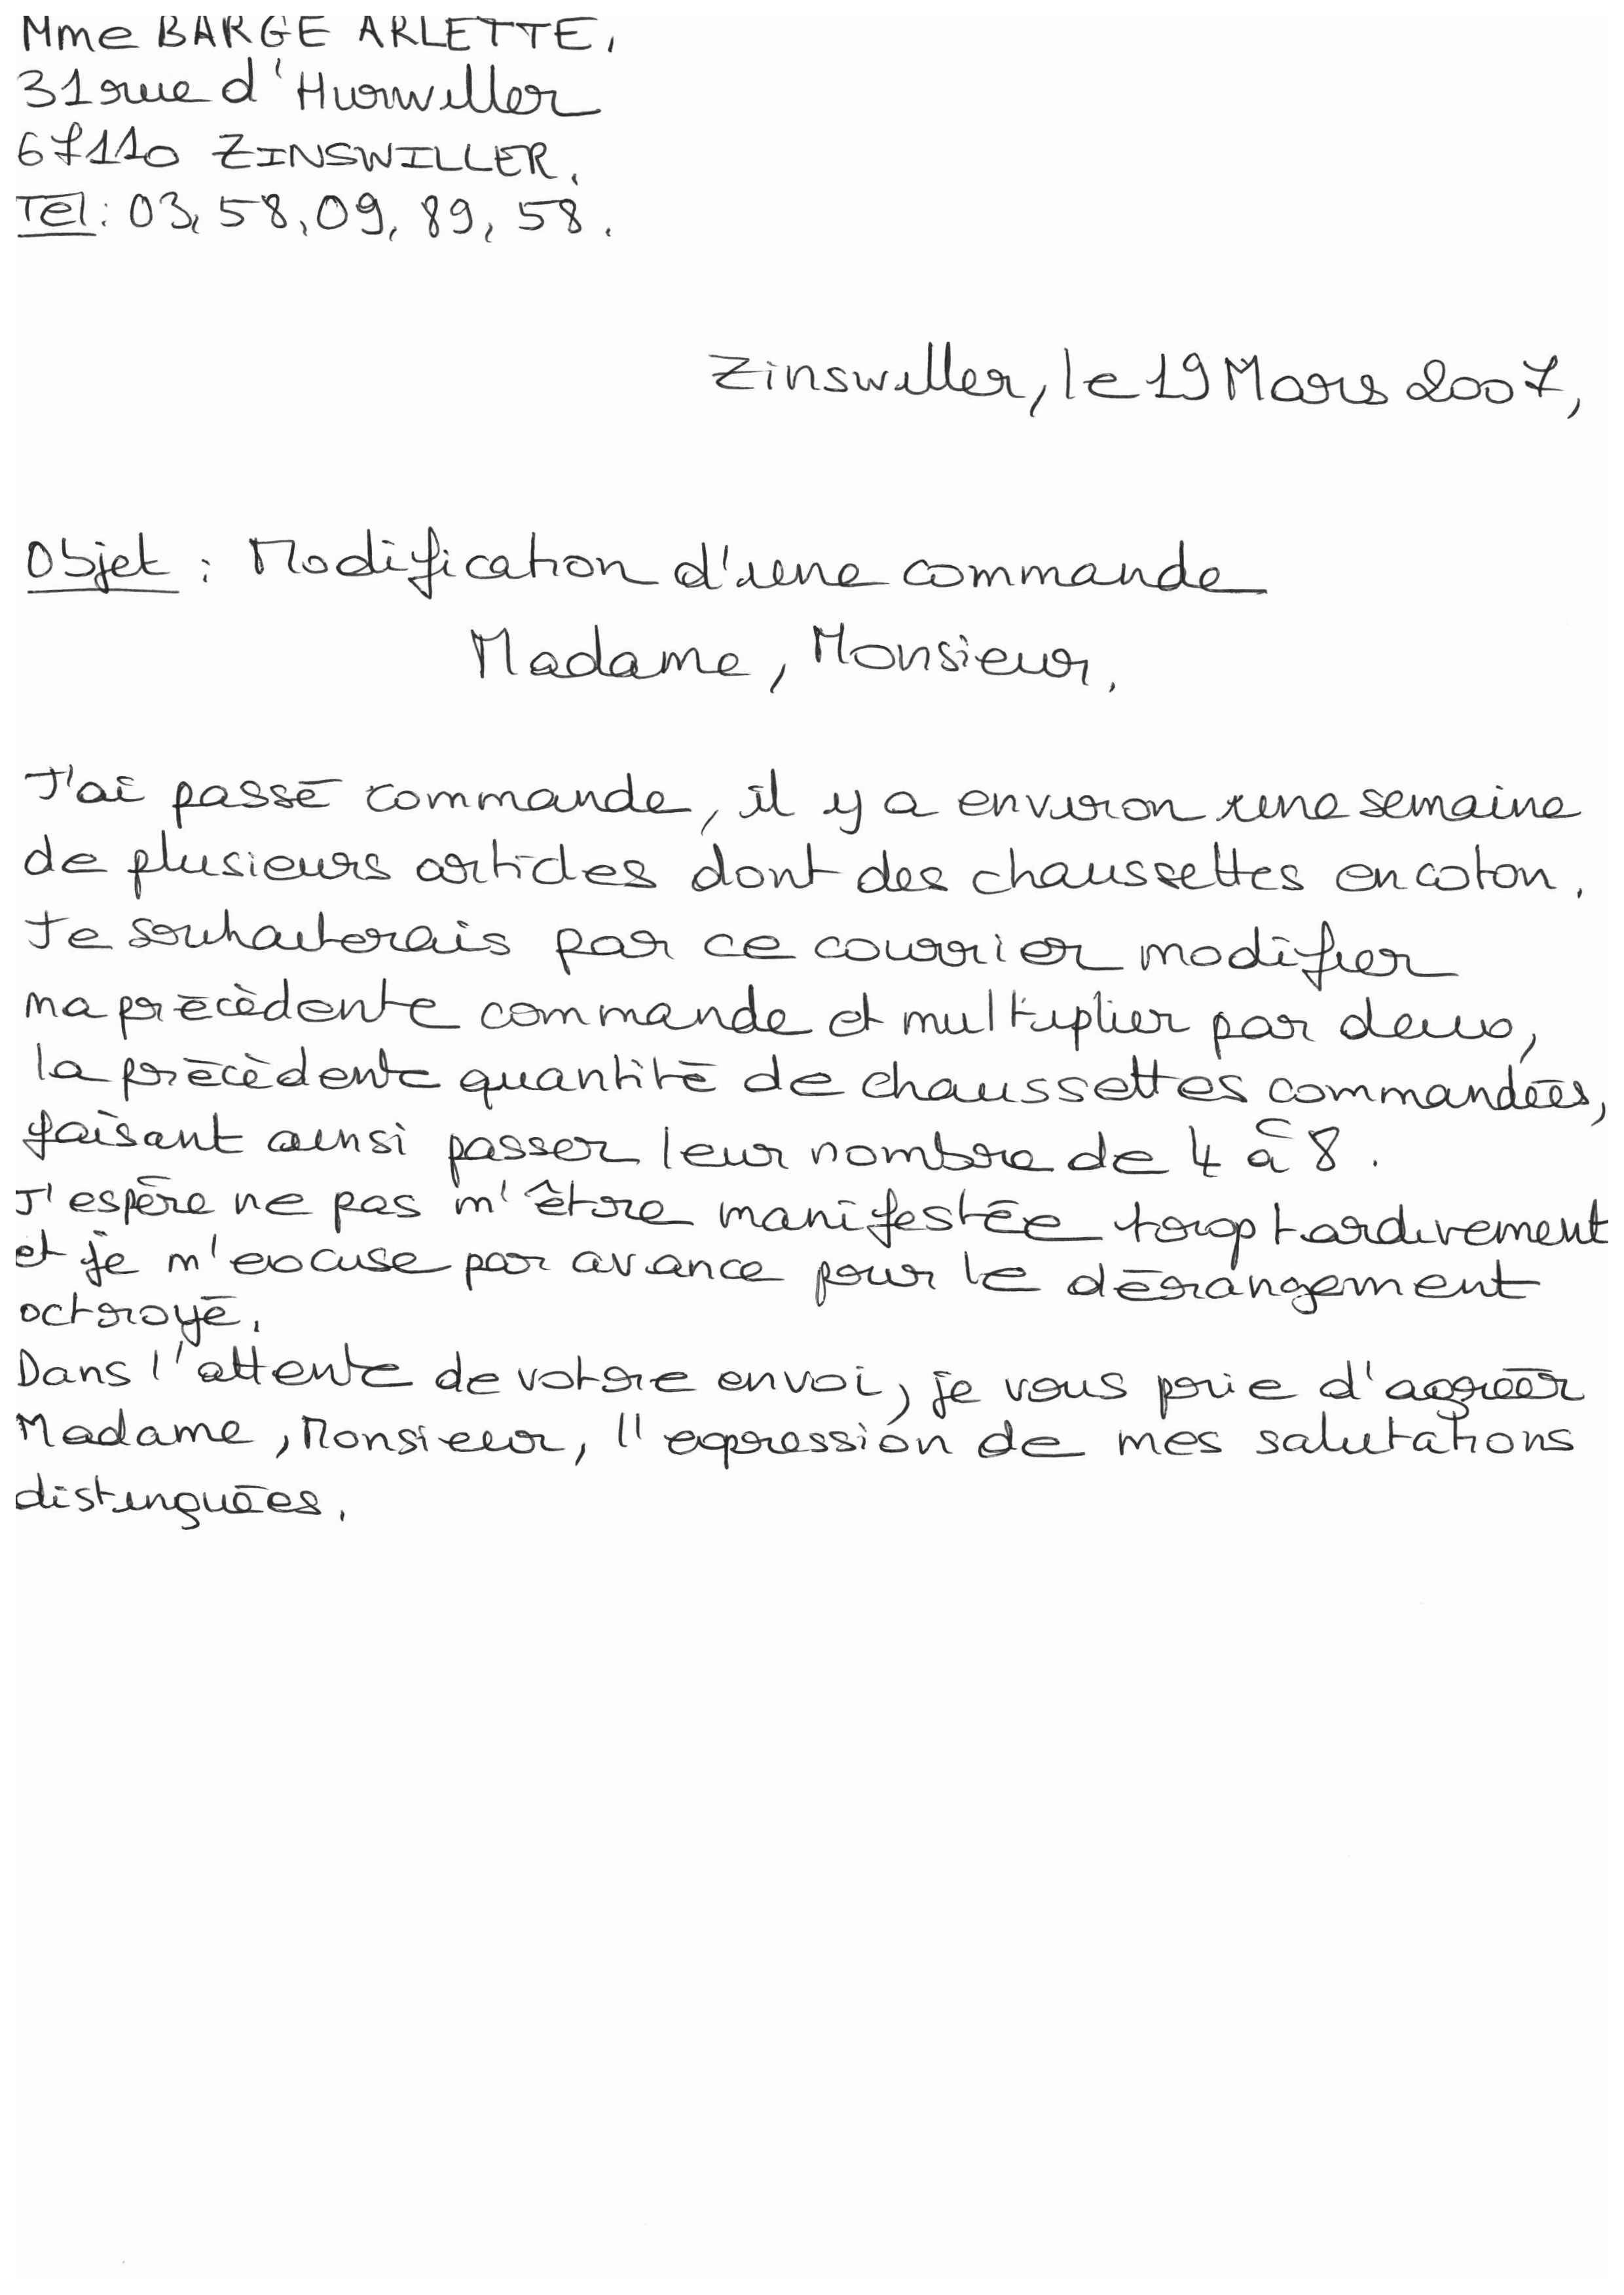 Mme BARGE ARLETTE,
31 rue d'Hurwiller
67110 ZINSWILLER.
Tél: 03, 58, 09, 89, 58.
Zinswiller, le 19 Mars 2007,
Objet : Modification d'une commande
Madame, Monsieur,
J'ai passé commande, il y a environ une semaine
de plusieurs articles dont des chaussettes en coton.
Je souhaiterais par ce courrier modifier
ma précèdente commande et multiplier par deux,
la précèdente quantité de chaussettes commandées,
faisant ainsi passer leur nombre de 4 à 8.
J'espère ne pas m'être manifestée trop tardivement
et je m'excuse par avance pour le dérangement
octroyé.
Dans l'attente de votre envoi, je vous prie d'agréer
Madame, Monsieur, l'expression de mes salutations
distinguées.